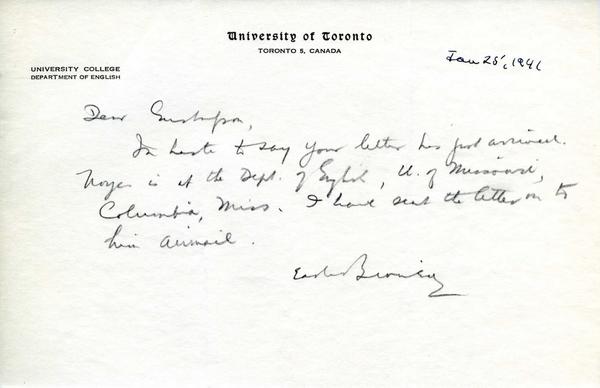 University of Toronto
TORONTO 5, CANADA
Jan 25, 1941
UNIVERSITY COLLEGE
DEPARTMENT OF ENGLISH
Dear Gustafson,
In haste to say your letter has just arrived.
Noyes is at the Dept. of English, U. of Missouri,
Columbia, Miss. I have sent the letter on to
him airmail.
Earle Birney